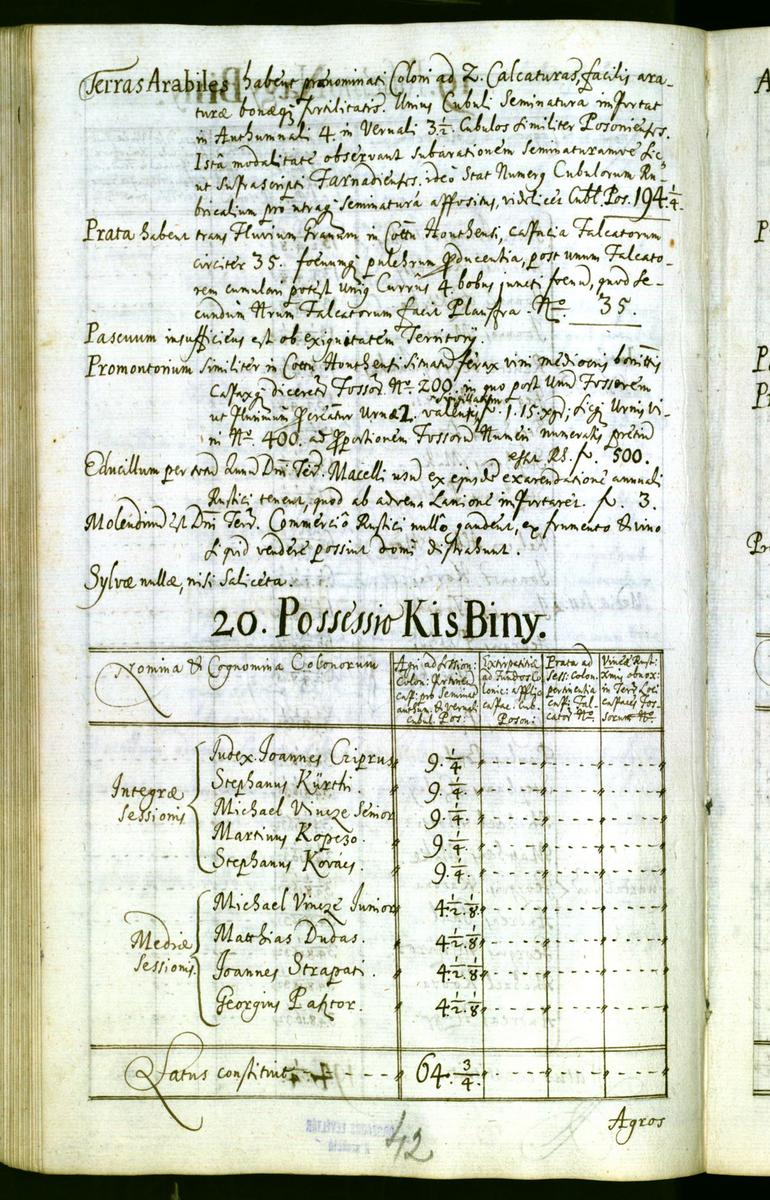 Terras Arabiles habent prænominati Coloni ad 2. Calcaturas, facilis ara-
turæ bonæq fertilitatis. Unius Cubuli Seminatura importat
in Authumnali 4. in Vernali 3 1/2. Cubulos similiter Posoniens.
Istâ modalitate observant subarationem seminaturamve sic
ut suprascripti Farnadienses. ideo Stat Numerq Cubulorum Ru-
bricalium pro utraq Seminatura appositus, videlicet Cubl. Pos. 194 1/4.
Prata habent trans Fluvium Granum in Cottu Honthensi, capacia Falcatorum
circiter 35. foenumq pulchrum producentia, post unum Falcato-
rem cumulari potest Unius Currus 4. bobus juncti foenu, quod se-
cundum Nrum Falcatorum facit Plaustra. No. 35.
Pascuum insufficiens est ob exiguitatem Territorij.
Promontorium similiter in Cottu Honthensi Situatu ferax vini mediocris bonittis
Capaxq diceretr Fossor. No. 200. in quo post Unu Fossorem
ut plurimum procreatur Urna 2. valentes f. 1.15. xr; sicq Urnis vi-
ni No. 400. ad proportionem Fossoru Numeri numeratis pretiu
esset Rf. f. 500.
Educillum per totu Annu Dni Terr. Macelli usu ex ejusde exarendatione annuali
Rustici tenent, quod ab advena Lanione importaret. f. 3.
Molendinu est Dni Terr. Commerciô Rustici nullô gaudent, ex frumento & vino
siquid vendere possunt domi distrahunt.
Sylvæ nullæ, nisi Saliceta.
20. Possessio Kis Biny.
Nomina & Cognomina Colonorum
Agri ad session: Colon: pertinen capt: pro Seminat authun. & vernali cubul. Pos:
Extirpatitia ad Fundos Colonic: applic capac. Cub. Posoni:
Prata ad Sess: Colon. pertinentia capt: Falcator No.
Vineæ Rusti: xmis obnox: in Terr. Loci capaces Fossorum No.
Integræ Sessionis
Judex Joannes Cziprus 9. 1/4
Stephanus Kürthi 9. 1/4
Michael Vincze Senior 9. 1/4
Martinus Kopczo. 9. 1/4
Stephanus Kovács. 9. 1/4
Mediæ Sessionis
Michael Vincze Junior 4 1/2. 1/8
Matthias Dudas. 4 1/2. 1/8
Joannes Strapati. 4 1/2. 1/8
Georgius Pasztor. 4 1/2. 1/8
Latus constituit 64. 3/4.
Agros
42